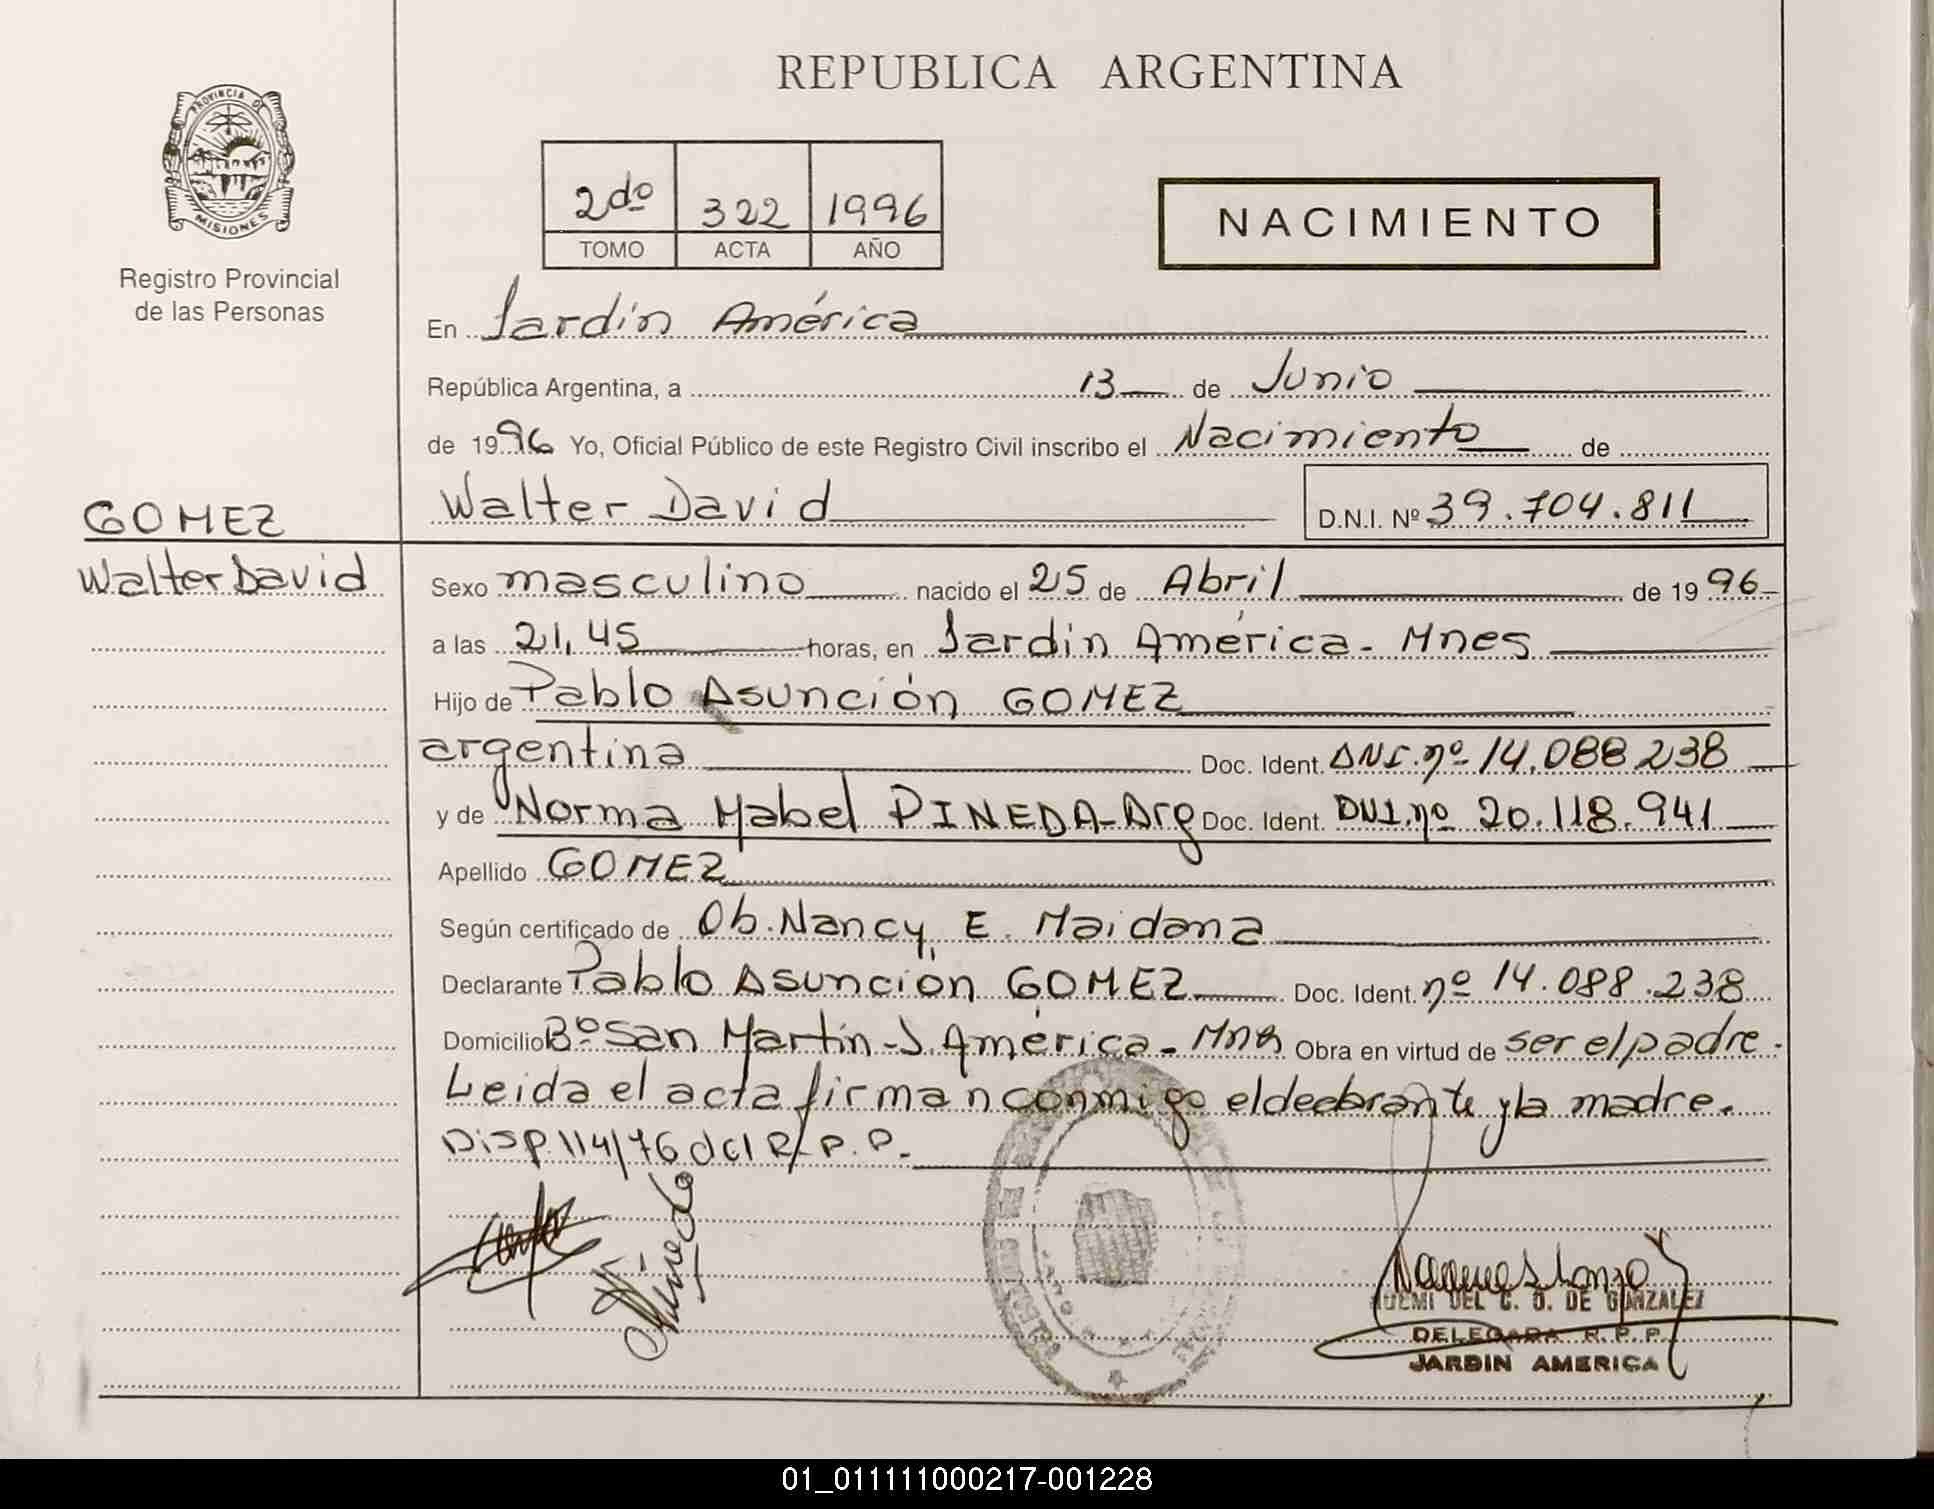 PROVINCIA DE
MISIONES
Registro Provincial
de las Personas
REPUBLICA ARGENTINA
2do 322 1996
TOMO ACTA AÑO
NACIMIENTO
En Jardín América
República Argentina, a 13 de Junio
de 1996 Yo, Oficial Público de este Registro Civil inscribo el Nacimiento de
Walter David D.N.I. Nº 39.704.811
GOMEZ
Walter David
Sexo masculino nacido el 25 de Abril de 1996
a las 21,45 horas, en Jardín América - Mnes
Hijo de Pablo Asunción GOMEZ
argentina Doc. Ident. DNI. nº 14.088.238
y de Norma Mabel PINEDA - Arg Doc. Ident. DNI. nº 20.118.941
Apellido GOMEZ
Según certificado de Ob. Nancy E. Maidana
Declarante Pablo Asunción GOMEZ Doc. Ident. nº 14.088.238
Domicilio Bº San Martín - J. América - Mnes Obra en virtud de ser el padre.
Leida el acta firman conmigo el declarante y la madre.
Disp. 114/76 del R.P.P.
DEL C. O. DE GONZALEZ
DELEGADA R. P. P.
JARDIN AMERICA
01_011111000217-001228